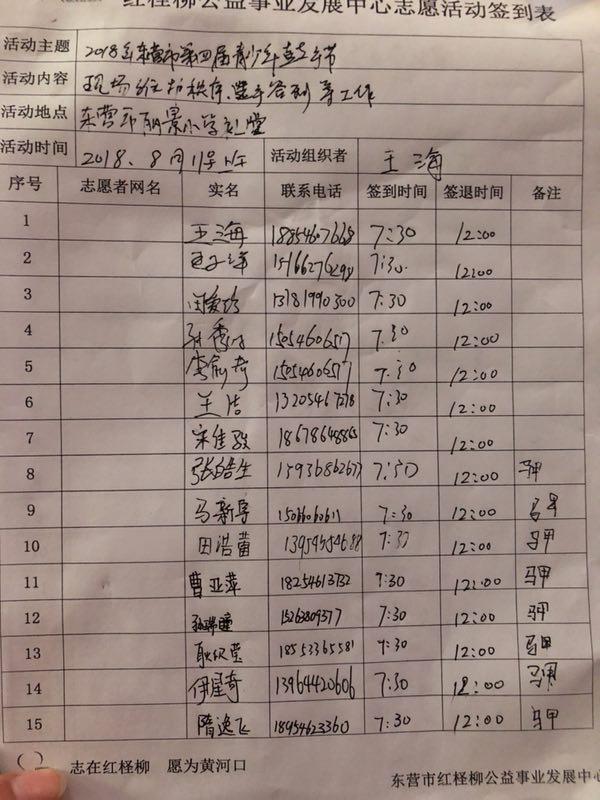 红柽柳公益事业发展中心志愿活动签到表
活动主题 2018年东营市第四届青少年音乐节
活动内容 现场维护秩序、签到等工作
活动地点 东营市丽景小学礼堂
活动时间 2018.8月11号上午 活动组织者 王海
序号 志愿者网名 实名 联系电话 签到时间 签退时间 备注
1 王海 18854607668 7:30 12:00
2 7:30 12:00
3 闫爱玲 13181990300 7:30 12:00
4 15054606517 7:30 12:00
5 李俞奇 15054606517 7:30 12:00
6 王浩 7:30 12:00
7 宋佳致 7:30 12:00
8 张皓生 7:30 12:00 马甲
9 马新导 7:30 12:00 马甲
10 田浩苗 7:30 12:00 马甲
11 曹亚萍 18254613732 7:30 12:00 马甲
12 孙瑞瞳 15263809377 7:30 12:00 马甲
13 18553365581 7:30 12:00 马甲
14 伊星奇 13964420606 7:30 12:00 马甲
15 隋逸飞 18954623360 7:30 12:00 马甲
志在红柽柳 愿为黄河口
东营市红柽柳公益事业发展中心